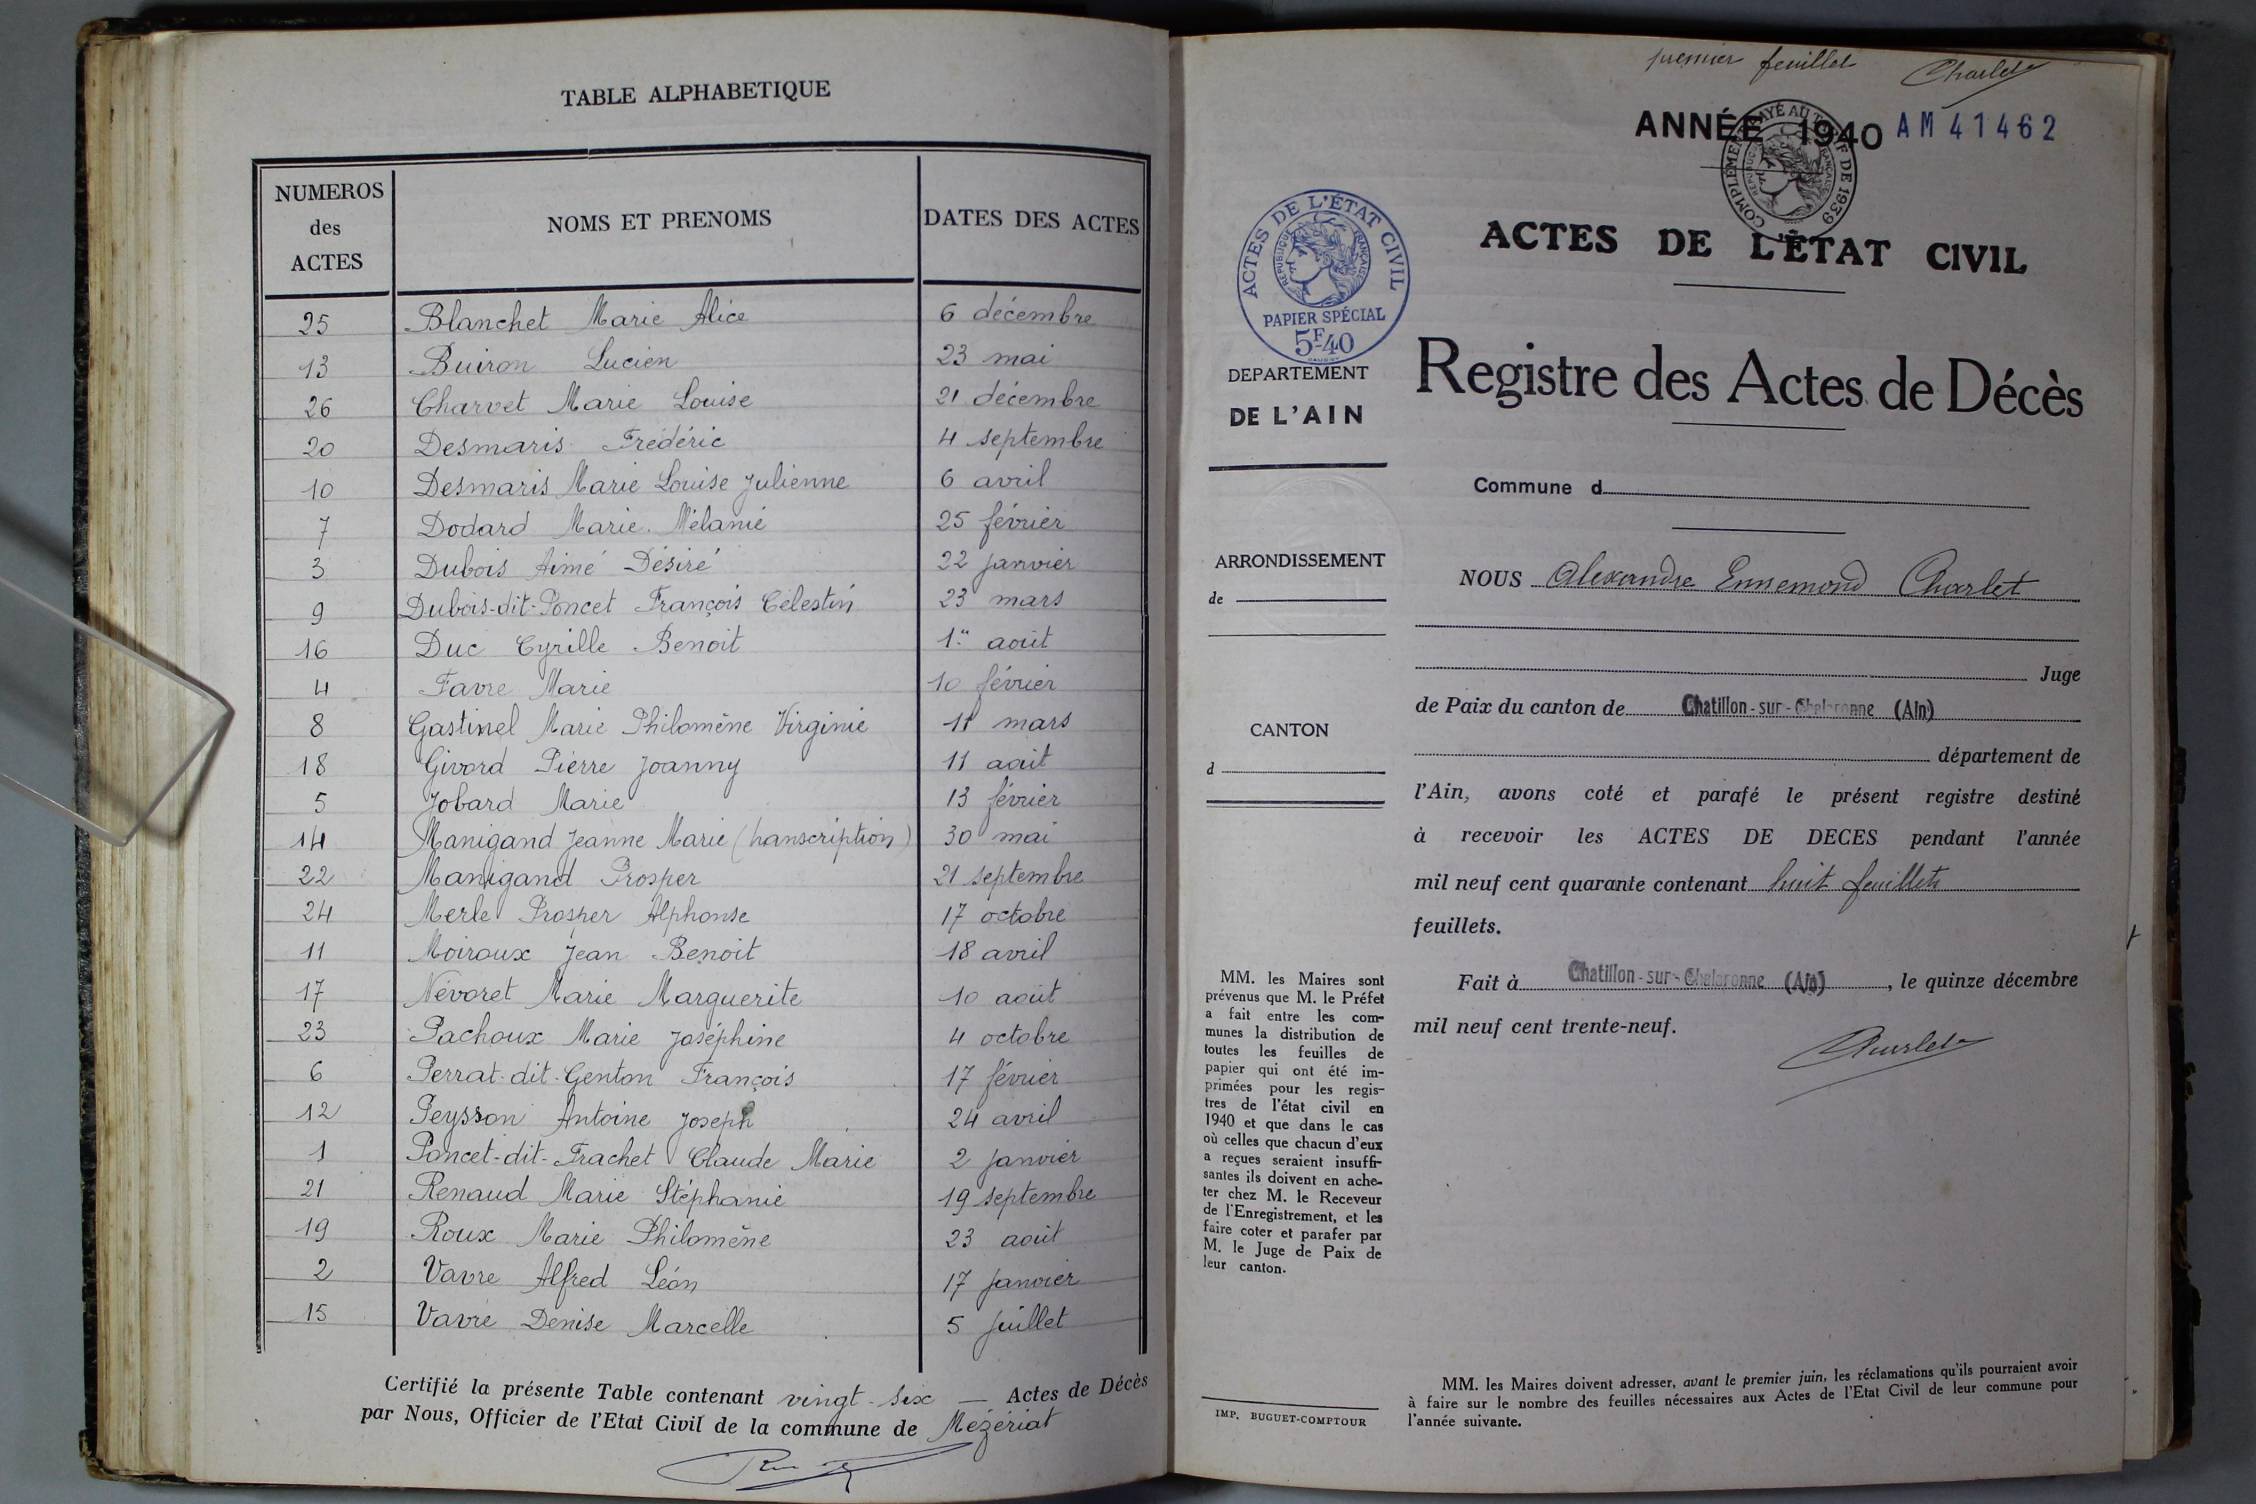 TABLE ALPHABETIQUE
NUMEROS des ACTES NOMS ET PRENOMS DATES DES ACTES
25 Blanchet Marie Alice 6 décembre
13 Buiron Lucien 23 mai
26 Charvet Marie Louise 21 décembre
20 Desmaris Frédéric 4 septembre
10 Desmaris Marie Louise Julienne 6 avril
7 Dodard Marie Mélanie 25 février
3 Dubois Aimé Désiré 22 janvier
9 Dubois-dit-Poncet François Célestin 23 mars
16 Duc Cyrille Benoit 1er août
4 Favre Marie 10 février
8 Gastinel Marie Philomène Virginie 11 mars
18 Givord Pierre Joanny 11 août
5 Jobard Marie 13 février
14 Manigand Jeanne Marie (transcription) 30 mai
22 Manigand Prosper 21 septembre
24 Merle Prosper Alphonse 17 octobre
11 Moiroux Jean Benoit 18 avril
17 Névoret Marie Marguerite 10 août
23 Pachoux Marie Joséphine 4 octobre
6 Perrat-dit-Genton François 17 février
12 Peysson Antoine Joseph 24 avril
1 Poncet-dit-Frachet Claude Marie 2 janvier
21 Renaud Marie Stéphanie 19 septembre
19 Roux Marie Philomène 23 août
2 Vavre Alfred Léon 17 janvier
15 Vavre Denise Marcelle 5 juillet
Certifié la présente Table contenant vingt-six — Actes de Décès
par Nous, Officier de l'Etat Civil de la commune de Mézériat
premier feuillet Charlet
ANNÉE 1940 AM 41462
COMPLÉMENT PAYÉ AU TARIF DE 1939
RÉPUBLIQUE FRANÇAISE
ACTES DE L'ÉTAT CIVIL
RÉPUBLIQUE FRANÇAISE
PAPIER SPÉCIAL
5F40
ACTES DE L'ÉTAT CIVIL
Registre des Actes de Décès
DEPARTEMENT
DE L'AIN
Commune d
ARRONDISSEMENT
de
CANTON
d
NOUS Alexandre Ennemond Charlet
Juge
de Paix du canton de Chatillon-sur-Chalaronne (Ain)
département de
l'Ain, avons coté et parafé le présent registre destiné
à recevoir les ACTES DE DECES pendant l'année
mil neuf cent quarante contenant huit feuillets
feuillets.
Fait à Chatillon-sur-Chalaronne (Ain), le quinze décembre
mil neuf cent trente-neuf.
Charlet
MM. les Maires sont
prévenus que M. le Préfet
a fait entre les com-
munes la distribution de
toutes les feuilles de
papier qui ont été im-
primées pour les regis-
tres de l'état civil en
1940 et que dans le cas
où celles que chacun d'eux
a reçues seraient insuffi-
santes ils doivent en ache-
ter chez M. le Receveur
de l'Enregistrement, et les
faire coter et parafer par
M. le Juge de Paix de
leur canton.
IMP. BUGUET-COMPTOUR
MM. les Maires doivent adresser, avant le premier juin, les réclamations qu'ils pourraient avoir
à faire sur le nombre des feuilles nécessaires aux Actes de l'Etat Civil de leur commune pour
l'année suivante.